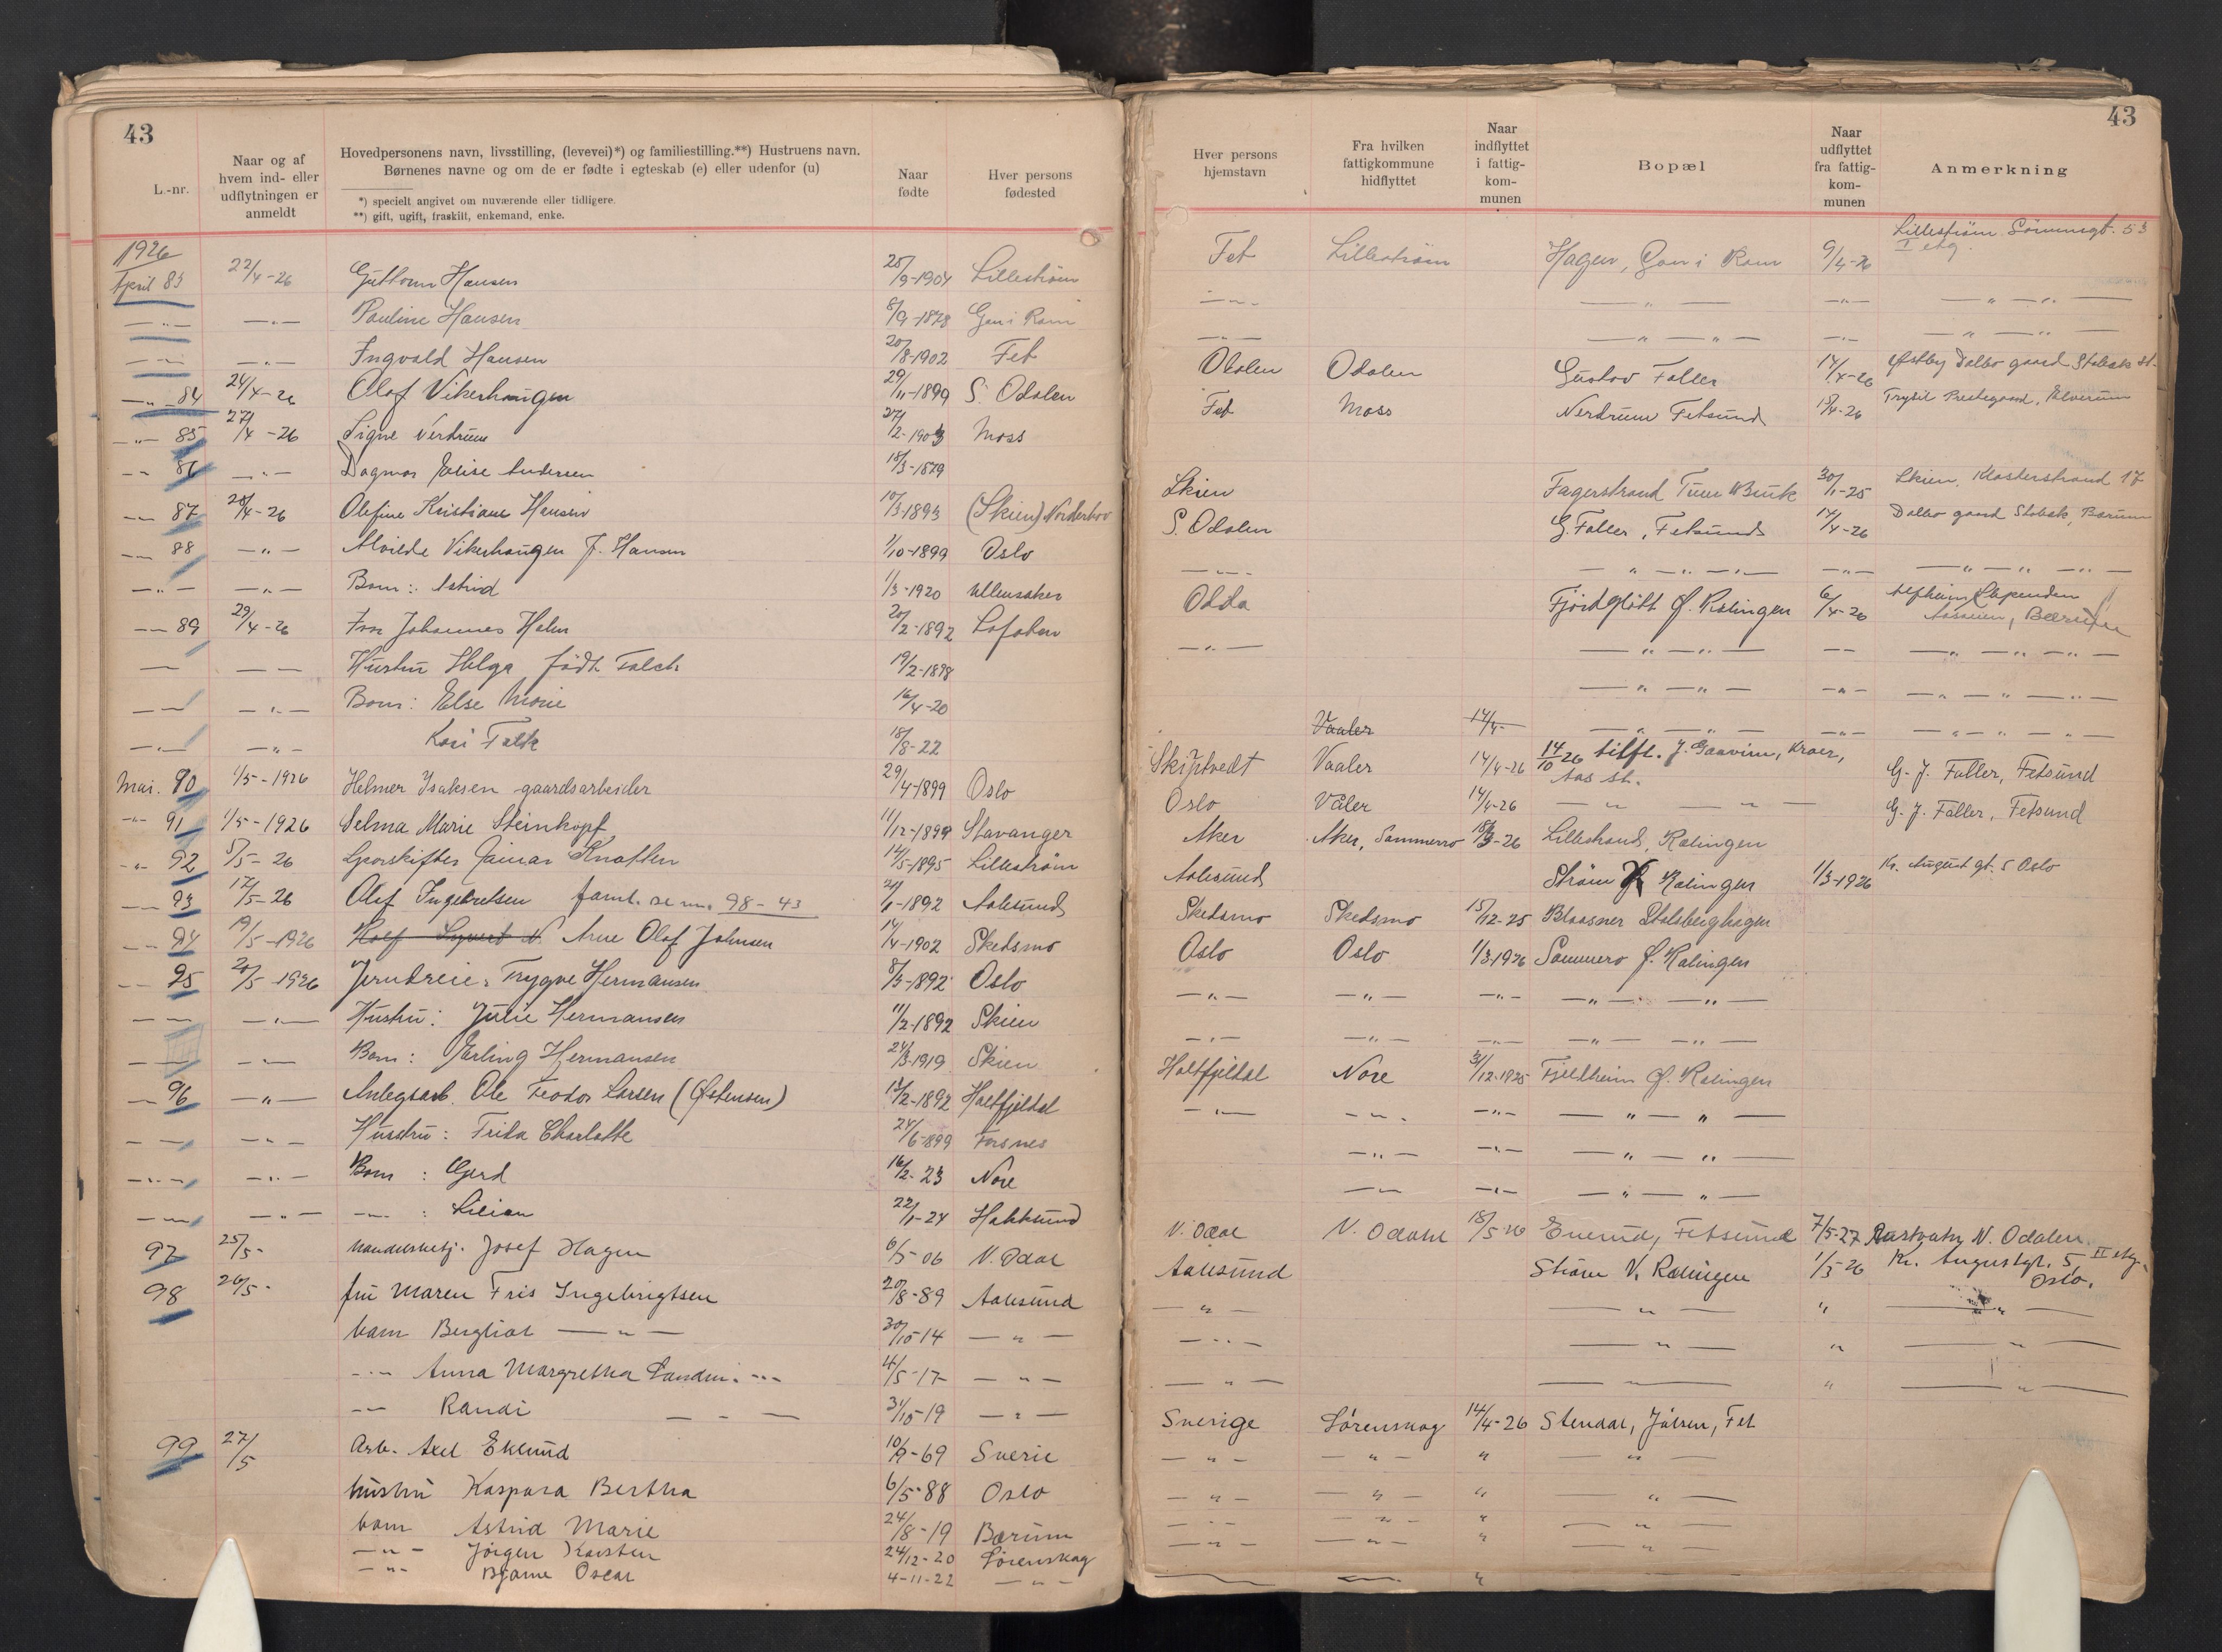 43
L.-nr.
Naar og af
hvem ind- eller
udflytningen er
anmeldt
Hovedpersonens navn, livsstilling, (levevei)*) og familiestilling.**) Hustruens navn.
Børnenes navne og om de er fødte i egteskab (e) eller udenfor (u)
*) specielt angivet om nuværende eller tidligere.
**) gift, ugift, fraskilt, enkemand, enke.
Naar
fødte
Hver persons
fødested
1926
April 83 22/4-26 Guttorm Hansen 25/9-1904 Lillestrøm
—„— —„— Pauline Hansen 8/9-1878 Gan i Ram
—„— —„— Ingvald Hansen 20/8-1902 Fet
—„— 84 24/4-26 Olaf Vikerhaugen 29/11-1899 S. Odalen
—„— 85 27/4-26 Signe Nerdrum 27/2-1903 Moss
—„— 86 —„— Dagmar Elise Andersen 18/3-1879
—„— 87 28/4-26 Olefine Kristiane Hansen 10/3-1893 (Skien) Norderhov
—„— 88 —„— Alvilde Vikerhaugen f. Hansen 1/10-1899 Oslo
—„— —„— Barn: Astrid 1/3-1920 Ullensaker
—„— 89 29/4-26 Johannes Holm 20/2-1892 Lofoten
— —„— Hustru Helga født Falch 19/2-1898
—„— —„— Barn: Else Marie 16/4-20
—„— —„— Kari Falk 18/8-22
Mai. 90 1/5-1926 Helmer Isaksen gaardsarbeider 29/4-1899 Oslo
—„— 91 1/5-1926 Selma Marie Steinkopf 11/12-1899 Stavanger
—„— 92 5/5-26 Sporskifter Einar Knatten 14/5-1895 Lillestrøm
—„— 93 12/5-26 Olaf Ingebretsen faml. se nr. 98-43 21/1-1892 Aalesund
—„— 94 19/5-1926 Arne Olaf Johnsen 14/4-1902 Skedsmo
—„— 95 20/5-1926 Jerndreier Trygve Hermansen 8/3-1892 Oslo
—„— —„— Hustru: Julie Hermansen 11/2-1892 Skien
—„— —„— Barn: Erling Hermansen 24/3-1919 Skien
— 96 —„— Anlegsarb. Ole Teodor Larsen (Østensen) 12/2-1892 Holtfjeldal
—„— —„— Hustru: Frida Charlotte 24/6-1899 Forsnes
—„— —„— Barn: Gerd 16/2-23 Nore
—„— —„— —„— : Lilian 22/1-24 Hokksund
97 25/5- Handelsbetj. Josef Hagen 6/5-06 N. Odal
98 26/5- fru Maren Fris Ingebrigtsen 20/8-89 Aalesund
barn Bergliot —„— 30/10-14 —„—
—„— Anna Margretha Sandin —„— 4/5-17 —„—
—„— Randi —„— 31/10-19 —„—
99 27/5 Arb. Axel Eklund 10/9-69 Sverie
hustru Kaspara Bertha 6/5-88 Oslo
barn Astrid Marie 24/8-19 Bærum
—„— Jörgen Karsten 24/12-20 Lörenskog
—„— Bjarne Oscar 4-11-22 —„—
43
Hver persons
hjemstavn
Fra hvilken
fattigkommune
hidflyttet
Naar
indflyttet
i fattig-
kom-
munen
Bopæl
Naar
udflyttet
fra fattig-
kom-
munen
Anmerkning
Fet Lillestrøm Hagen, Gan i Ram 9/4-26 Lillestrøm Sørumsgt. 53
I etg.
—„— —„— —„— —„—
—„— —„— —„— —„—
Odalen Odalen Gustav Faller 14/4-26 Østby Dalbo gaard Stabæk st.
Fet Moss Nerdrum Fetsund 15/4-26 Trysil Prestegaard, Elverum
Skien Fagerstrand 30/1-25 Skien, Klosterstrand 17
S. Odalen G. Faller, Fetsund 14/4-26 Dalbo gaard Stabæk, Bærum
—„— —„— —„— —„—
Odda Fjordgløtt Ø. Rælingen 6/4-26 Slependen
Bærum
—„— —„— —„— —„—
—„— —„— —„—
Vaaler 14/4- —„— —„— —„—
Skiptvedt Vaaler 14/4-26 14/10 26 tilfl. J. Gaavim, Kroer, G. J. Faller, Fetsund
Aas st.
Oslo Våler 14/4-26 —„— —„— G. J. Faller, Fetsund
Aker Aker, Sommerro 18/3-26 Lillestrand, Rælingen
Aalesund Strøm V. Rælingen 1/3-1926 Kr. August gt. 5 Oslo
Skedsmo Skedsmo 15/12-25 Blaasner Stalsberghagen
Oslo Oslo 1/3-1926 Sommero Ø. Rælingen
—„— —„— —„— —„—
—„— —„— —„— —„—
Holtfjeldal Nore 31/12-1925 Fjeldheim Ø. Rælingen
—„— —„— —„— —„—
—„— —„— —„—
—„— —„— —„—
N. Odal N. Odalen 18/5-26 Enerud, Fetsund 7/5-27 N. Odalen
Aalesund Strøm V. Rælingen 1/3-26 Kr. Augustgt. 5 II etg.
Oslo.
—„— —„— „ —„—
—„— —„— „ —„—
—„— —„— „ —„—
Sverige Lörenskog 14/4-26 Stendal, Jålsen, Fet
—„— —„— „ —„—
—„— —„— „ —„—
—„— —„— „ —„—
—„— —„— „ —„—